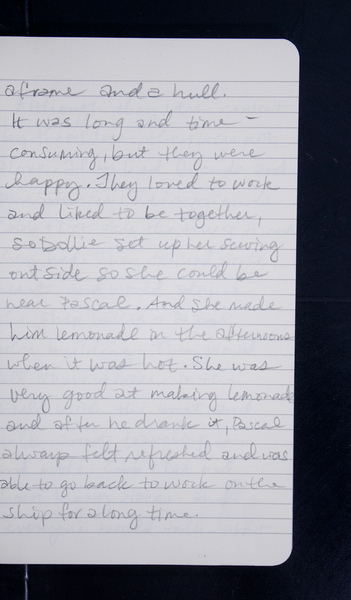 a frame and a hull.
It was long and time-
consuming, but they were
happy. They loved to work
and liked to be together,
so Dollie set up her sewing
outside so she could be
near Pascal. And she made
him lemonade in the afternoons
when it was hot. She was
very good at making lemonade
and after he drank it, Pascal
always felt refreshed and was
able to go back to work on the
ship for a long time.